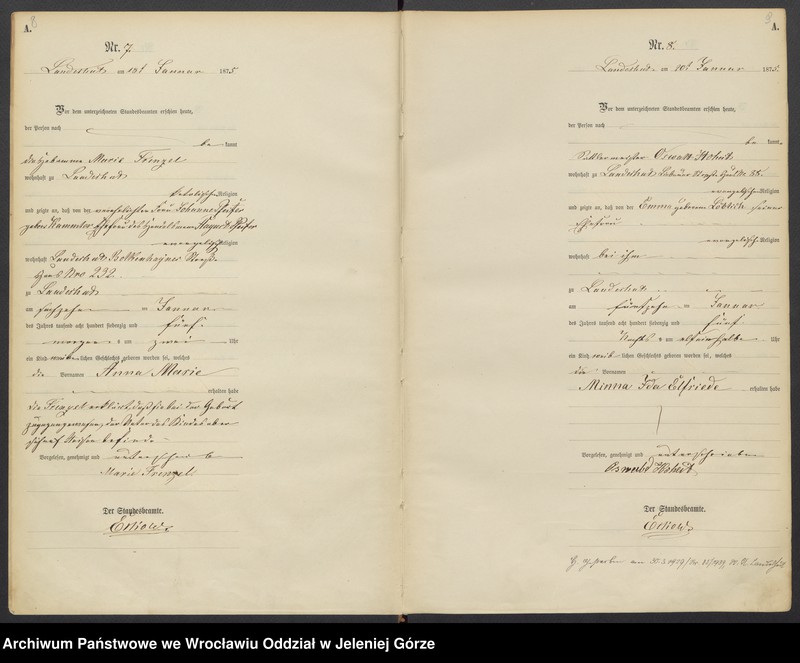 8
A.
Nr. 7.
Landeshut am 18t Januar 1875
Vor dem unterzeichneten Standesbeamten erschien heute,
der Person nach
be kannt
die Hebamme Marie Frenzel
wohnhaft zu Landeshut
katholischer Religion
und zeigte an, daß von der verehelichten Frau Johanne
geborne Ehefrau des Handelsmann August
evangelischer Religion
wohnhaft Landeshut Bolkenhayner Straße
Haus Nro 292.
zu Landeshut
am sechzehn ten Januar
des Jahres tausend acht hundert siebenzig und fünf
morgens um zwei Uhr
ein Kind weib lichen Geschlechts geboren worden sei, welches
die Vornamen Anna Marie
erhalten habe
die Frenzel erklärt, daß sie bei der Geburt
zugegen gewesen, der Vater des Kindes aber
sich auf Reisen befinde
Vorgelesen, genehmigt und unterschrieben
Marie Frenzel
Der Standesbeamte.
9
A.
Nr. 8.
Landeshut am 20t Januar 1875.
Vor dem unterzeichneten Standesbeamten erschien heute,
der Person nach
be kannt
Sattlermeister Oswald
wohnhaft zu Landeshut Haus Nr. 38.
evangelischer Religion
und zeigte an, daß von der Emma geborene seiner
Ehefrau
evangelischer Religion
wohnhaft bei ihm
zu Landeshut
am fünfzehn ten Januar
des Jahres tausend acht hundert siebenzig und fünf
Nachts um Uhr
ein Kind weib lichen Geschlechts geboren worden sei, welches
die Vornamen
Minna Ida Elfriede erhalten habe
Vorgelesen, genehmigt und unterschrieben
Oswald
Der Standesbeamte.
Archiwum Państwowe we Wrocławiu Oddział w Jeleniej Górze